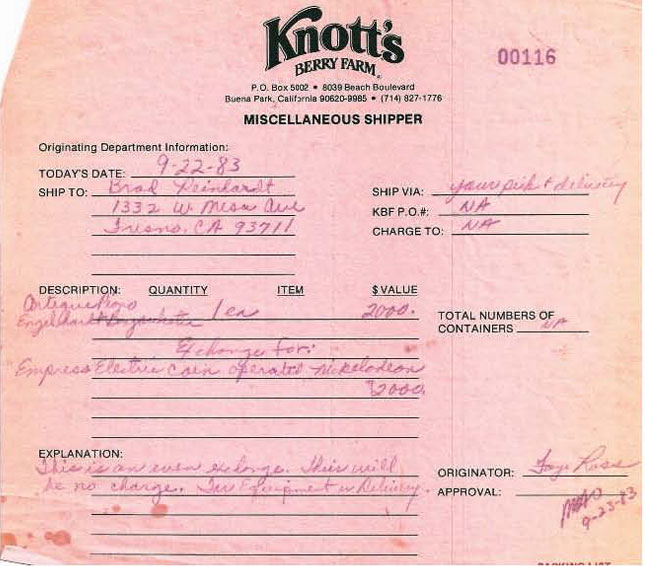 Knott's
BERRY FARM®
00116
P.O. Box 5002 • 8039 Beach Boulevard
Buena Park, California 90620-9985 • (714) 827-1776
MISCELLANEOUS SHIPPER
Originating Department Information:
TODAY'S DATE: 9-22-83
SHIP TO: Brad Reinhardt
1332 W Mesa Ave
Fresno, CA 93711
SHIP VIA: your pick & delivery
KBF P.O.#: NA
CHARGE TO: NA
DESCRIPTION: QUANTITY ITEM $ VALUE
Piano
Engelhardt 1 ea 2000.
TOTAL NUMBERS OF
CONTAINERS NA
Exchange for:
Empress Electric Coin operated Nickelodeon
$2000.
EXPLANATION:
This is an even exchange. This will
be no charge. Equipment or Delivery.
ORIGINATOR:
APPROVAL:
9-23-83
PACKING LIST